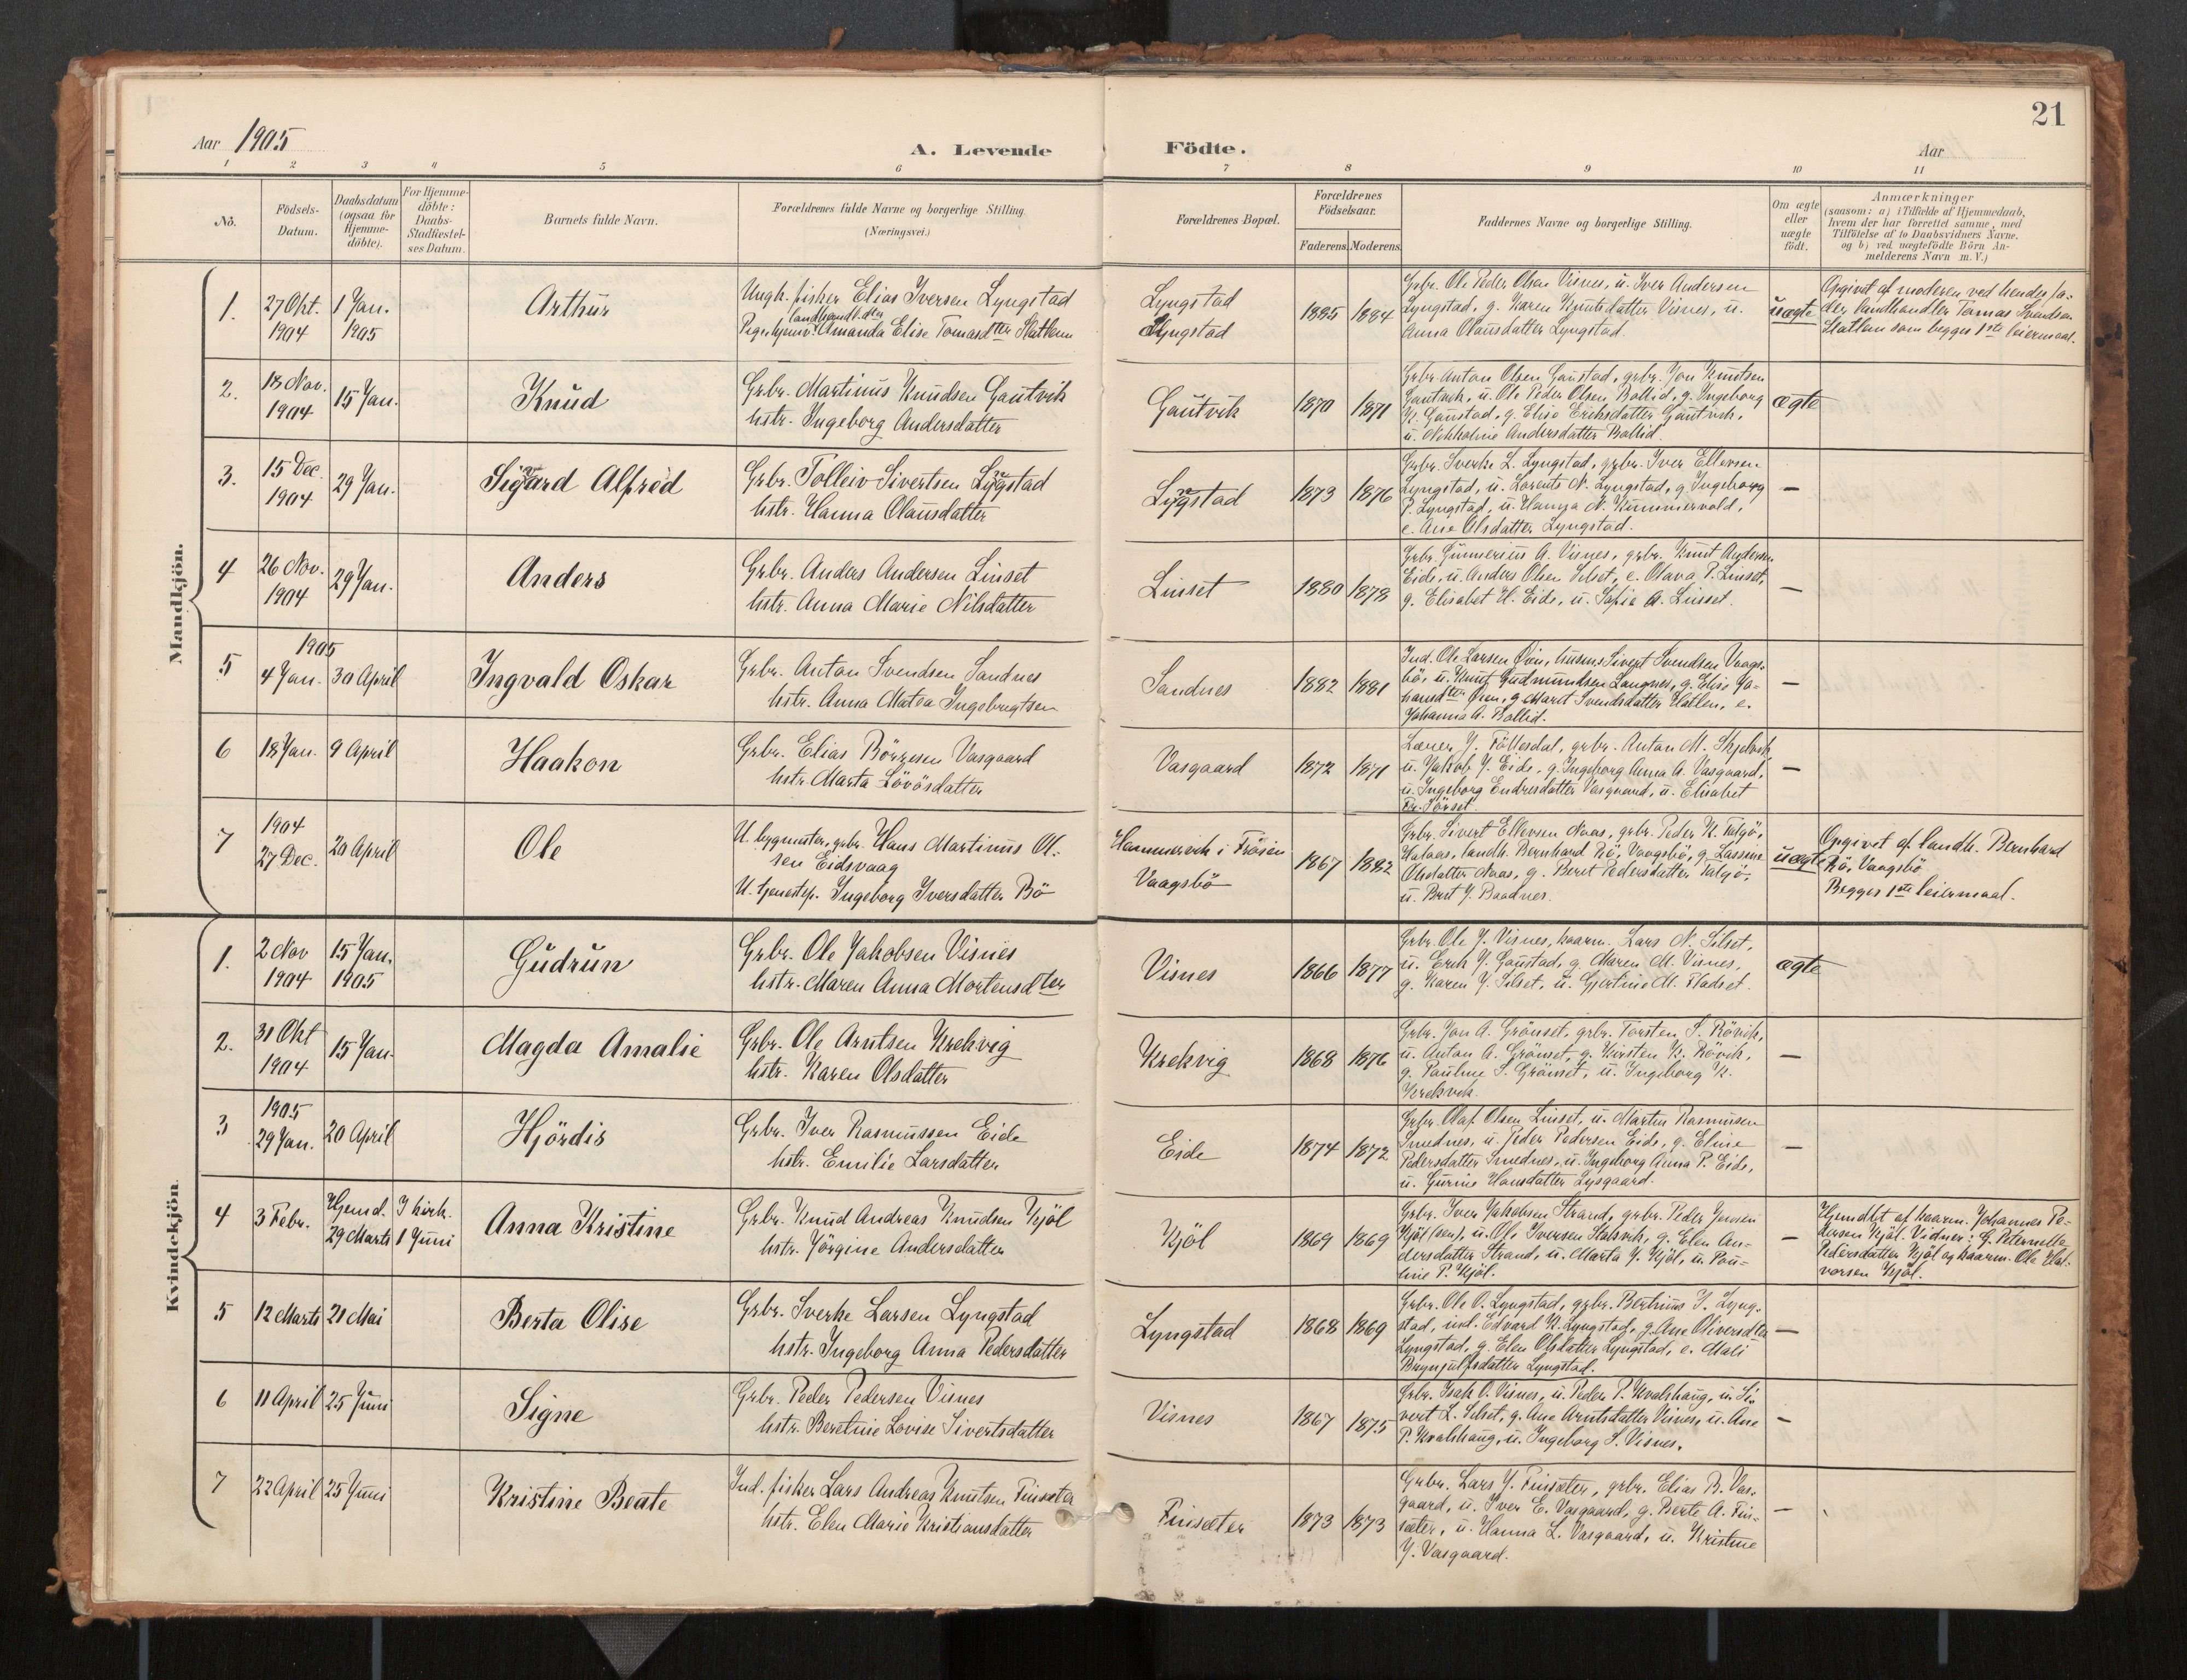 21
Aar 1905
A. Levende Födte.
Aar
1 2 3 4 5 6 7 8 9 10 11
No.
Födsels-
Datum.
Daabsdatum
(ogsaa for
Hjemme-
döbte).
For Hjemme-
döbte:
Daabs-
Stadfæstel-
ses Datum.
Barnets fulde Navn.
Forældrenes fulde Navne og borgerlige Stilling.
(Næringsvei.)
Forældrenes Bopæl.
Forældrenes
Födselsaar.
Faderens. Moderens.
Faddernes Navne og borgerlige Stilling.
Om ægte
eller
uægte
födt.
Anmærkninger
(saasom: a) i Tilfælde af Hjemmedaab,
hvem der har forrettet samme, med
Tilföielse af to Daabsvidners Navne.
og b) ved uægtefödte Börn An-
melderens Navn m. V.)
Mandkjön.
1.
27 Okt.
1904
1 Jan.
1905
Arthur
Ungk. fisker Elias Iversen Lyngstad
landhandl. dtr
Amanda Elise Tomasdter Statlem
Lyngstad
Lyngstad
1885
1884
Grbr. Ole Peder Olsen Visnes, u. Iver Andersen
Lyngstad, g. Karen Knutsdatter Visnes, u.
Anna Olausdatter Lyngstad.
uægte
Opgivet af moderen ved hendes fa-
der, landhandler Tomas Knudsen
Statlem som begges 1ste leiermaal.
2.
18 Nov.
1904
15 Jan.
Knud
Grbr. Martinus Knudsen Gautvik
hstr. Ingeborg Andersdatter
Gautvik
1870
1871
Grbr. Anton Olsen Gaustad, grbr. Jon Knutsen
Gautvik, u. Ole Peder Olsen Bollid, g. Ingeborg
K. Gaustad, g. Elise Eriksdatter Gautvik,
u. Nikkoline Andersdatter Bollid.
ægte
3.
15 Dec
1904
29 Jan.
Sigurd Alfred
Grbr. Tolleiv Sivertsen Lyngstad
hstr. Hanna Olausdatter
Lyngstad
1873
1876
Grbr. Sverke L. Lyngstad, grbr. Iver Ellevsen
Lyngstad, u. Lorents N. Lyngstad, g. Ingeborg
P. Lyngstad, u. Hanna N. Kummervold,
e. Ane Olsdatter Lyngstad.
—
4
26 Nov.
1904
29 Jan.
Anders
Grbr. Anders Andersen Linset
hstr. Anna Marie Nilsdatter
Linset
1880
1878
Grbr. Gunnerius A. Visnes, grbr. Knut Andersen
Eide, u. Anders Olsen Silset, e. Olava P. Linset,
g. Elisabet H. Eide, u. Sofie A. Linset.
—
5
1905
4 Jan.
30 April
Ingvald Oskar
Grbr. Anton Svendsen Sandnes
hstr. Anna Matea Ingebrigtsen
Sandnes
1882
1881
Ind. Ole Larsen Öien, husms Sivert Svendsen Vaags-
bö, u. Knut Gudmundsen Langnes, g. Elise Jo-
hansdter Öien, g. Marit Svendsdatter Hatlen, e.
Johanna A. Bollid.
—
6
18 Jan.
9 April
Haakon
Grbr. Elias Börresen Vasgaard
hstr. Marta Lövösdatter
Vasgaard
1872
1871
Lærer J. Föllesdal, grbr. Anton M. Skjelvik
u. Jakob J. Eide, g. Ingeborg Anna A. Vasgaard,
u. Ingeborg Endresdatter Vasgaard, u. Elisabet
7
1904
27 Dec.
20 April
Ole
U. bygmester, grbr. Hans Martinus Ol-
sen Eidsvaag
U. tjenestep. Ingeborg Iversdatter Bö
Hammervik i Fröien
Vaagsbö
1867
1882
Grbr. Sivert Ellevsen Naas, grbr. Peder K. Talgö,
Halaas, landh. Bernhard Bö, Vaagsbö, g. Lassine
Olsdatter Naas, g. Berit Pedersdatter Talgö,
u. Brit J. Baadnes.
uægte
Opgivet af landh. Bernhard
Bö, Vaagsbö
Begges 1ste leiermaal.
Kvindekjön.
1.
2 Nov
1904
15 Jan.
1905
Gudrun
Grbr. Ole Jakobsen Visnes
hstr. Maren Anna Mortensdter
Visnes
1866
1877
Grbr. Ole J. Visnes, kaarm. Lars N. Silset,
u. Erik J. Gaustad, g. Maren M. Visnes,
g. Karen J. Silset, u. Gjertine M. Hadset.
ægte
2.
31 Okt
1904
15 Jan.
Magda Amalie
Grbr. Ole Arntsen Krekvig
hstr. Karen Olsdatter
Krekvig
1868
1876
Grbr. Jon A. Grönset, grbr. Torsten S. Rövik,
u. Anton A. Grönset, g. Kirsten K. Rövik,
g. Pauline S. Grönset, u. Ingeborg K.
Krekvik.
—
3
1905
29 Jan.
20 April
Hjördis
Grbr. Iver Rasmussen Eide
hstr. Emilie Larsdatter
Eide
1874
1872
Grbr. Olaf Olsen Linset, u. Martin Rasmussen
Smednes, u. Peder Pedersen Eide, g. Eline
Pedersdatter Smednes, u. Ingeborg Anna P. Eide,
u. Gurine Hansdatter Lysgaard.
—
4
3 Febr.
Hjemd.
29 Marts
I kirk.
1 Juni
Anna Kristine
Grbr. Knud Andreas Knudsen Kjöl
hstr. Jörgine Andersdatter
Kjöl
1869
1869
Grbr. Iver Jakobsen Strand, grbr. Peder Jensen
Kjöl (sen), u. Ole Iversen Stalsvik, g. Elen An-
dersdatter Strand, u. Marta J. Kjöl, u. Pau-
line P. Kjöl.
—
Hjemdöbt af kaarm. Johannes Pe-
dersen Kjöl. Vidner: G. Peternelle
Pedersdatter Kjöl og kaarm. Ole Hal-
vorsen Kjöl.
5
12 Marts
21 Mai
Berta Olise
Grbr. Sverke Larsen Lyngstad
hstr. Ingeborg Anna Pedersdatter
Lyngstad
1868
1869
Grbr. Ole O. Lyngstad, grbr. Bertinus I. Lyng-
stad, ind. Edvard K. Lyngstad, g. Ane Oliversdter
Lyngstad, g. Elen Olsdatter Lyngstad, e. Mali
Brynjulfsdatter Lyngstad.
—
6
11 April
25 Juni
Signe
Grbr. Peder Pedersen Visnes
hstr. Beretine Lovise Sivertsdatter
Visnes
1867
1875
Grbr. Isak O. Visnes, u. Peder P. Kvalshaug, u. Si-
vert L. Silset, g. Ane Arntsdatter Visnes, u. Ane
P. Kvalshaug, u. Ingeborg S. Visnes.
—
7
22 April
25 Juni
Kristine Beate
Ind. fisker Lars Andreas Knutsen Finsæter
hstr. Elen Marie Kristiansdatter
Finsæter
1873
1873
Grbr. Lars J. Finsæter, grbr. Elias B. Vas-
gaard, u. Iver E. Vasgaard, g. Berte A. Fin-
sæter, u. Hanna L. Vasgaard, u. Kristine
J. Vasgaard.
—